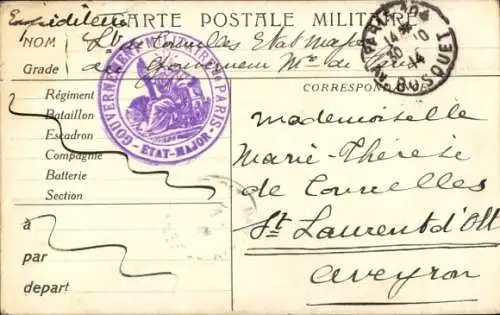 Expéditeur CARTE POSTALE MILITAIRE
NOM Lt de Courelles Etat Major
Grade du Gouverneur Mre de Paris
GOUVERNEMENT MILITAIRE DE PARIS
- ETAT-MAJOR -
PARIS 104
14 30
10
14
AV. BOSQUET
CORRESPON
Régiment
Bataillon
Escadron
Compagnie
Batterie
Section
à
par
depart
Mademoiselle
Marie-Thérèse
de Courelles
St Laurent d'Olt
Aveyron